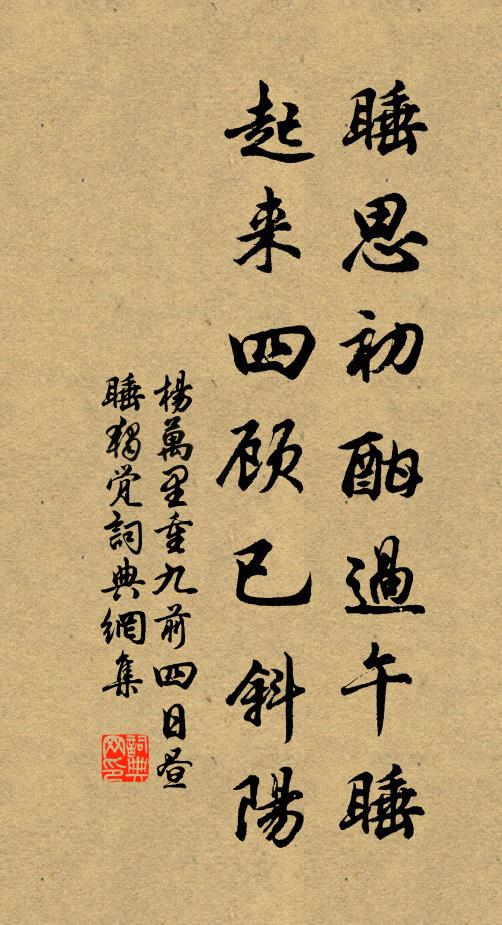 睡思初酣過午睡
起来四顾已斜陽
楊萬里重九前四日昼
睡獨觉詞典網集
詞典网印